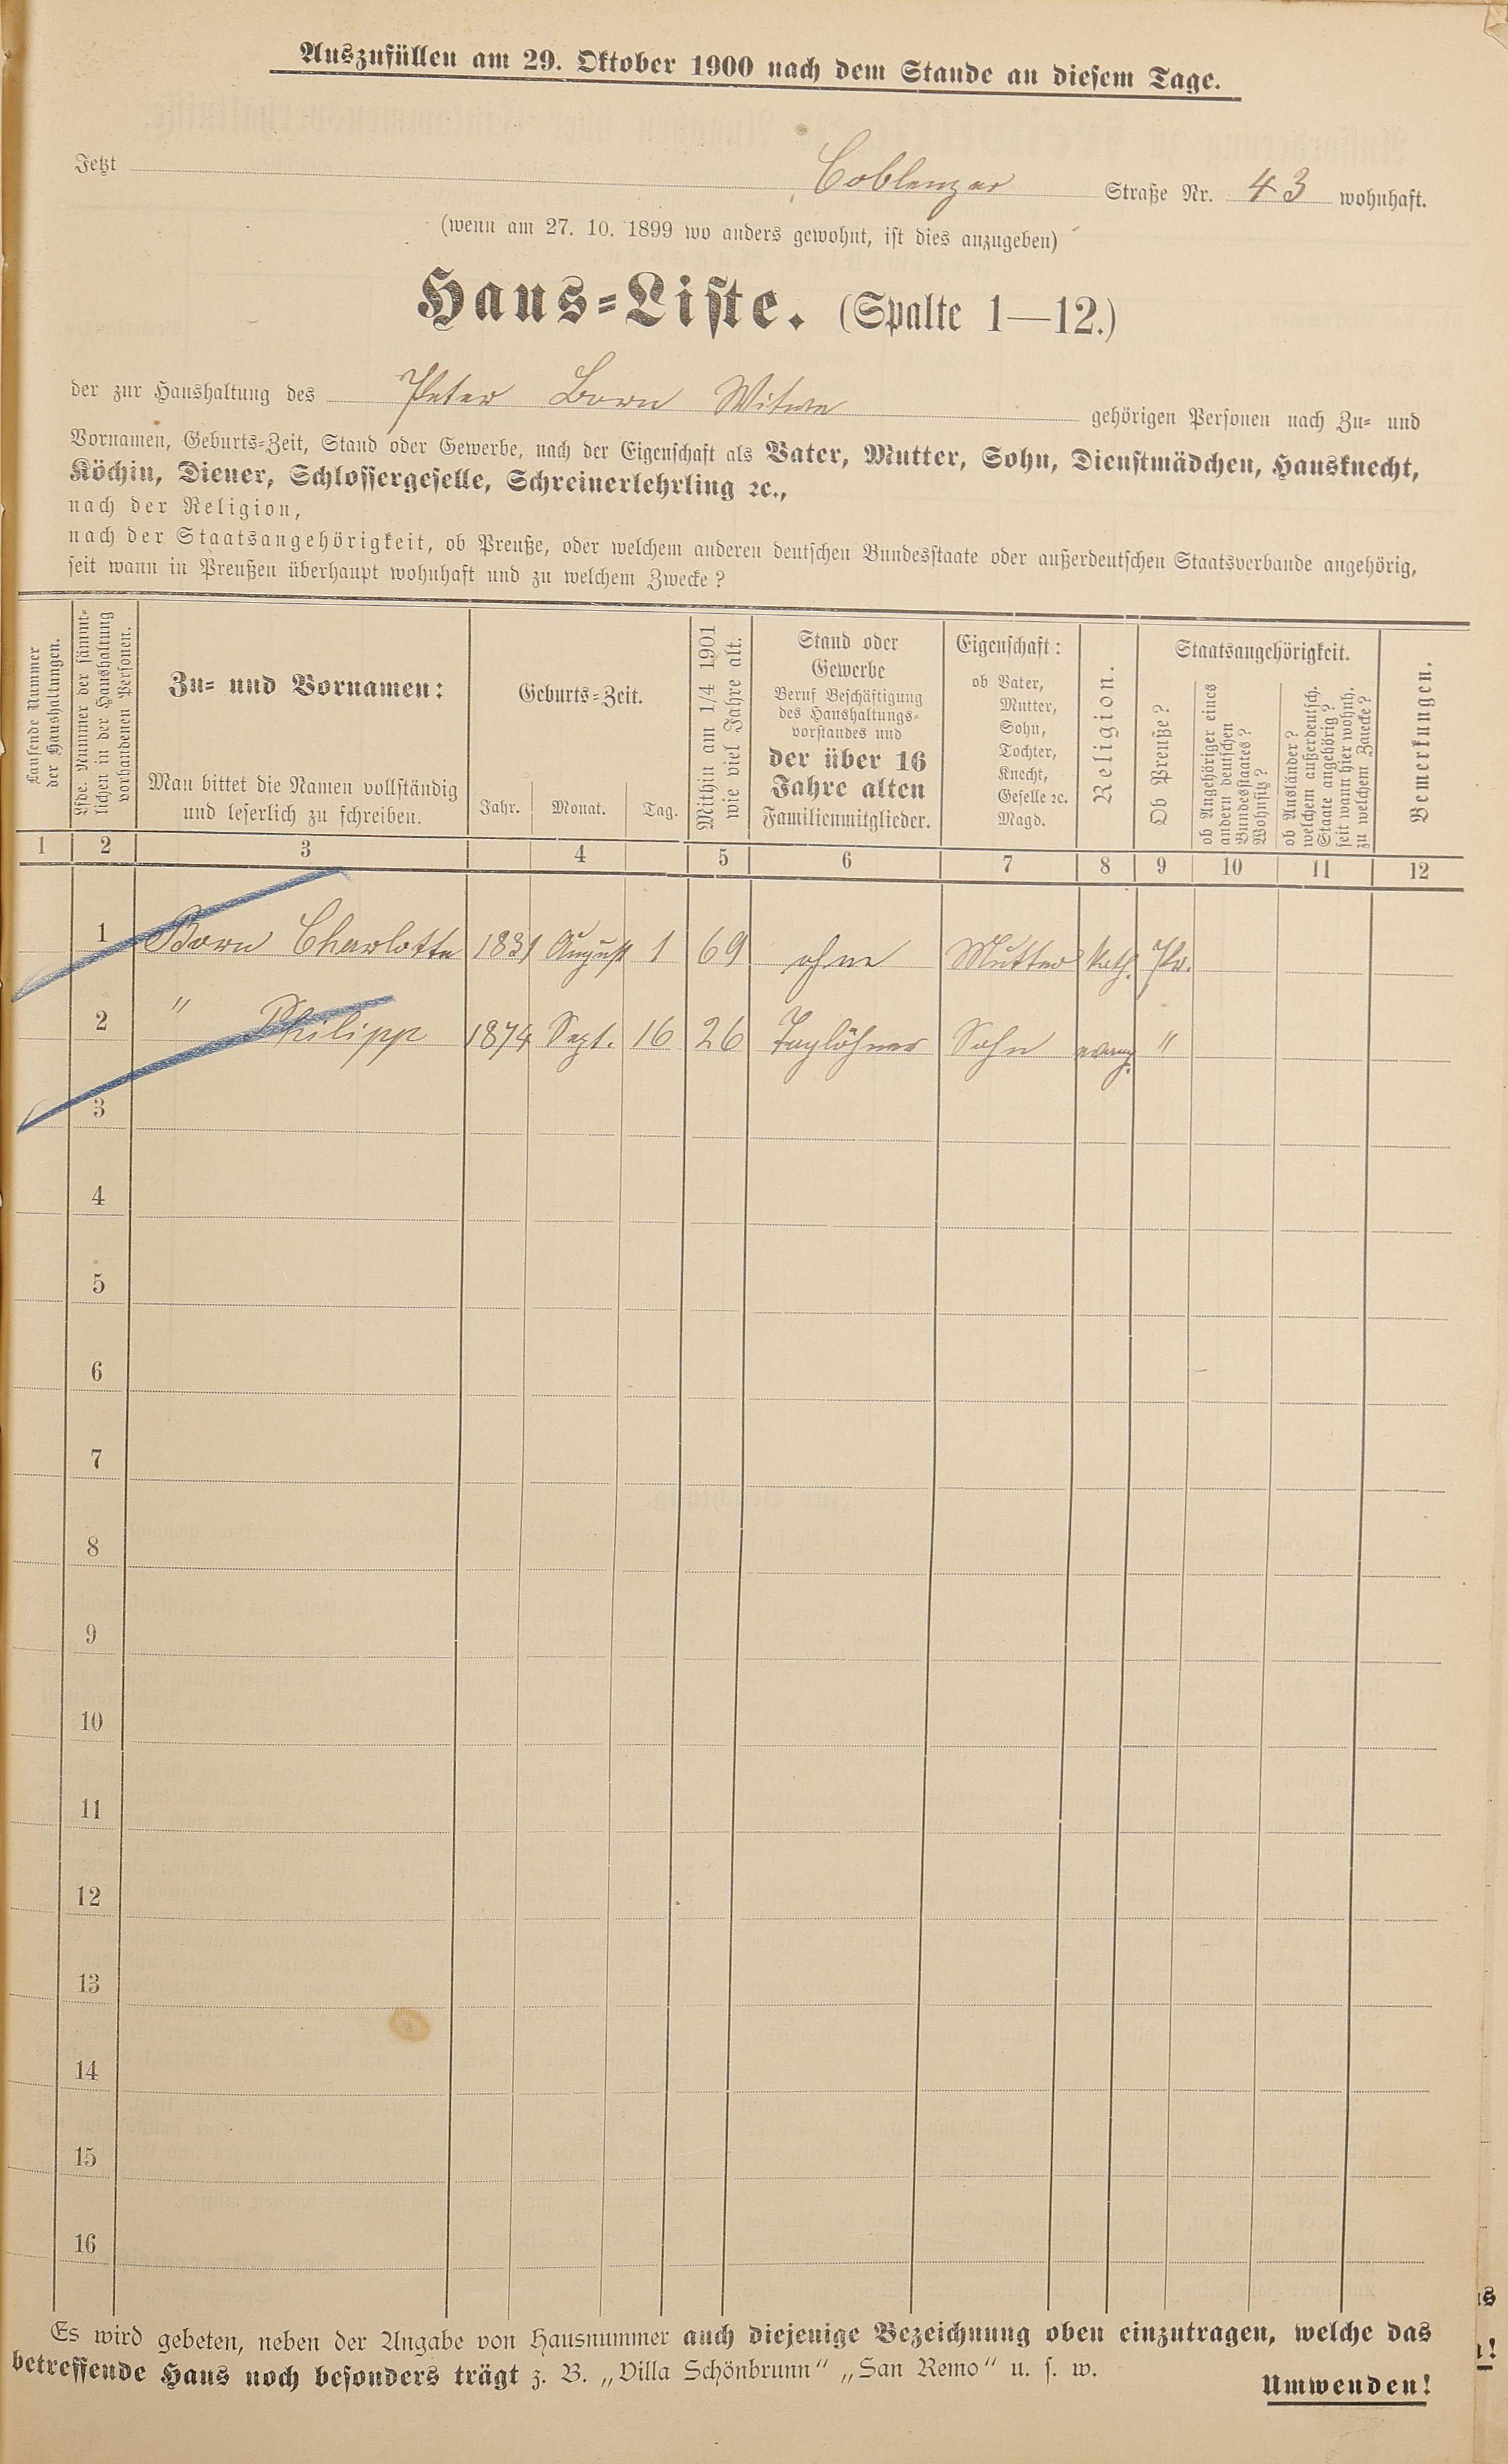 Auszufüllen am 29. Oktober 1900 nach dem Stande an diesem Tage.
Jetzt Coblenzer Straße Nr. 43 wohnhaft.
(wenn am 27. 10. 1899 wo anders gewohnt, ist dies anzugeben)
Haus-Liste. (Spalte 1—12.)
der zur Haushaltung des Peter Born Witwe gehörigen Personen nach Zu- und
Vornamen, Geburts-Zeit, Stand oder Gewerbe, nach der Eigenschaft als Vater, Mutter, Sohn, Dienstmädchen, Hausknecht,
Köchin, Diener, Schlossergeselle, Schreinerlehrling ꝛc.,
nach der Religion,
nach der Staatsangehörigkeit, ob Preuße, oder welchem anderen deutschen Bundesstaate oder außerdeutschen Staatsverbande angehörig,
seit wann in Preußen überhaupt wohnhaft und zu welchem Zwecke?
Laufende Nummer
der Haushaltungen.
Lfde. Nummer der sämmt-
lichen in der Haushaltung
vorhandenen Personen.
Zu- und Vornamen:
Man bittet die Namen vollständig
und leserlich zu schreiben.
Geburts-Zeit.
Jahr. Monat. Tag.
Mithin am 1/4 1901
wie viel Jahre alt.
Stand oder
Gewerbe
Beruf Beschäftigung
des Haushaltungs-
vorstandes und
der über 16
Jahre alten
Familienmitglieder.
Eigenschaft:
ob Vater,
Mutter,
Sohn,
Tochter,
Knecht,
Geselle ꝛc.
Magd.
Religion.
Staatsangehörigkeit.
Ob Preuße?
ob Angehöriger eines
andern deutschen
Bundesstaates?
Wohnsitz?
ob Ausländer?
welchem außerdeutsch.
Staate angehörig?
seit wann hier wohnh.
zu welchem Zwecke?
Bemerkungen.
1 2 3 4 5 6 7 8 9 10 11 12
1 Born Charlotte 1831 August 1 69 ohne Mutter kath. Pr.
2 " Philipp 1874 Sept. 16 26 Taglöhner Sohn evang. "
3
4
5
6
7
8
9
10
11
12
13
14
15
16
Es wird gebeten, neben der Angabe von Hausnummer auch diejenige Bezeichnung oben einzutragen, welche das
betreffende Haus noch besonders trägt z. B. „Villa Schönbrunn" „San Remo" u. s. w.
Umwenden!